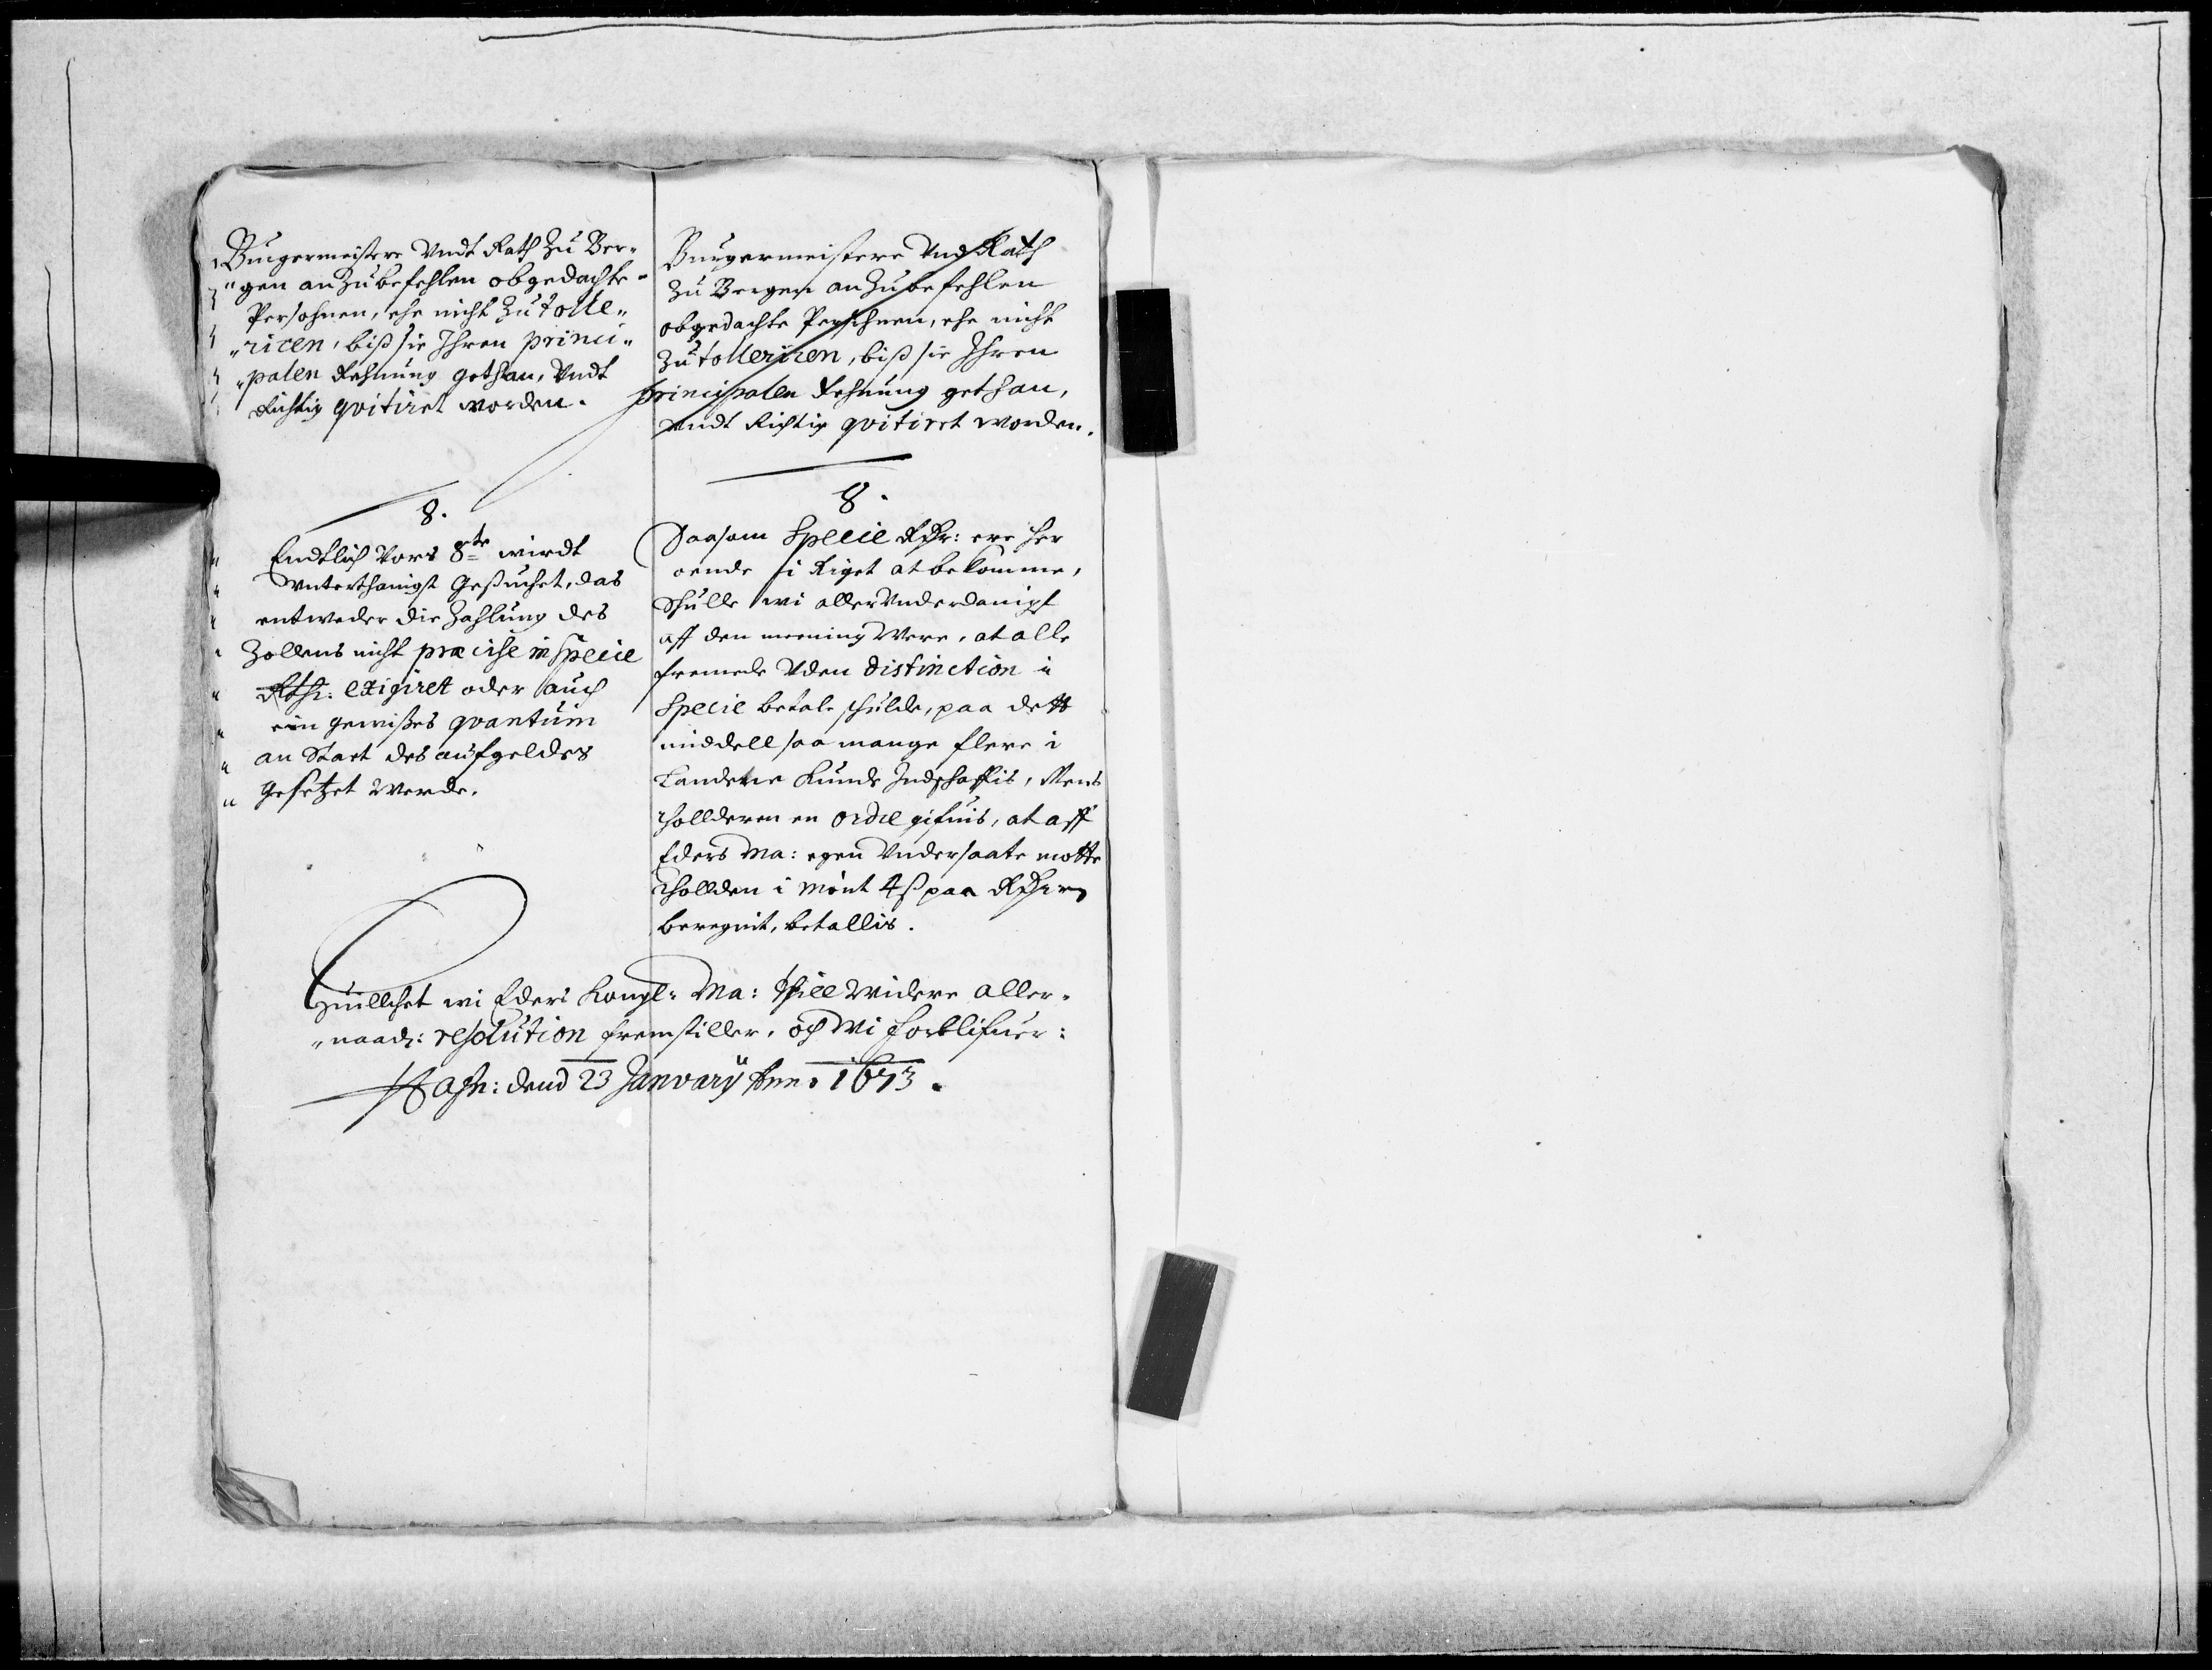 Burgermeistere Vndt Rath Zu Ber„
„gen anzubefehlen obgedachte
Persohnen, ehe nicht Zu tolle„
„riren, biß sie Ihren princi„
„palen Rechnung gethan, Vndt
Richtig qvitiret worden.
8.
Endtlich Vors 8te wirdt
Vnterthänigst Gesuchet, das
entweder die Zahlung des
Zollens nicht præcise in specie
Rthr: exigiret oder auch
ein gewißes qvantum
an Statt des aufgeldes
gesetzet Werde.
Burgermeistere Vnd Rath
Zu Bergen anzubefehlen
obgedachte Persohnen, ehe nicht
Zu tolleriren, biß sie Ihren
principalen Rechnung gethan,
Vndt Richtig qvitiret worden.
8.
Saasom Specie Rthr: ere her
i Riget at bekomme,
Schulle wi allerVnderdanigst
aff den meening Were, at alle
fremede Vden distinction i
Specie betale schulde, paa dett
middell saa mange flere i
Landene kunde Indschaffis, Mens
tholderen en ordre gifuis, at aff
Eders Ma: egen Vndersaate motte
tholden i Mönt 4 ß paa Rthr:
beregnit, betallis.
Huillchet wi Eders Kongl: Ma: till Widere aller„
„naad: resolution fremstiller, och Wi forblifuer:
Hafn: dend 23 Janvary Anno 1673.